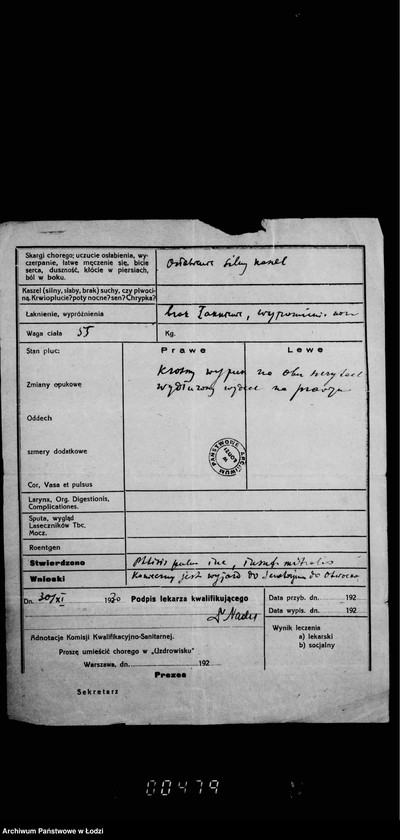 Skargi chorego; uczucie osłabienia, wy-
czerpanie, łatwe męczenie się, bicie
serca, duszność, kłócie w piersiach,
ból w boku.
silny kaszel
Kaszel (silny, słaby, brak) suchy, czy plwoci-
ną. Krwioplucie? poty nocne? sen? Chrypka?
Łaknienie, wypróżnienia
brak łaknienia, wypróżnien. norm
Waga ciała 55 Kg.
Stan płuc:
Prawe Lewe
Zmiany opukowe
na obu szczytach
wydłużony wydech na prawym
Oddech
szmery dodatkowe
ARCHIWUM PAŃSTWOWE W ŁODZI
Cor, Vasa et pulsus
Larynx, Org. Digestionis,
Complicationes.
Sputa, wygląd
Laseczników Tbc.
Mocz.
Roentgen
Stwierdzono Phtisis pulm
Wnioski Konieczny jest wyjazd do Sanatorjum do Otwocka
Dn. 30/XI 1930 Podpis lekarza kwalifikującego
Data przyb. dn. 192
Data wypis. dn. 192
Wynik leczenia
a) lekarski
b) socjalny
Adnotacje Komisji Kwalifikacyjno-Sanitarnej.
Proszę umieścić chorego w „Uzdrowisku"
Warszawa, dn. 192
Prezes
Sekretarz
00479
Archiwum Państwowe w Łodzi